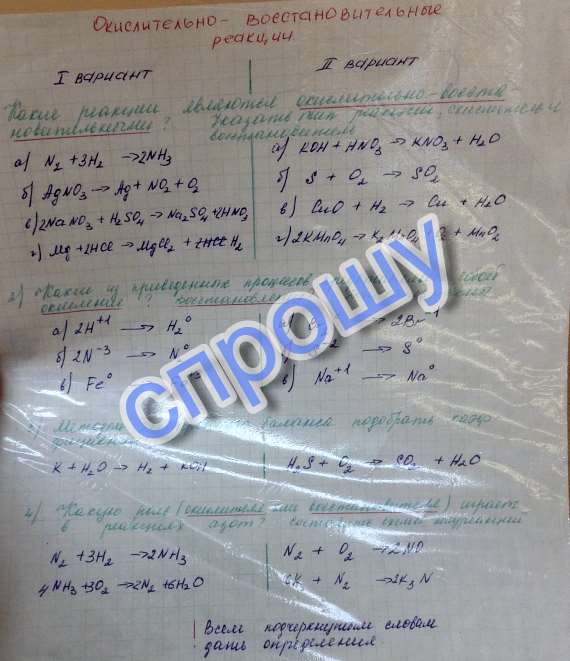 Окислительно-восстановительные
реакции
I вариант
II вариант
Какие реакции являются окислительно-восста-
новительными? Указать тип реакции, окислитель и
восстановитель
а) N₂ + 3H₂ → 2NH₃
б) AgNO₃ → Ag + NO₂ + O₂
в) 2NaNO₃ + H₂SO₄ → Na₂SO₄ + 2HNO₃
г) Mg + 2HCl → MgCl₂ + H₂
а) KOH + HNO₃ → KNO₃ + H₂O
б) S + O₂ → SO₂
в) CuO + H₂ → Cu + H₂O
г) 2KMnO₄ → K₂MnO₄ O₂ + MnO₂
2) Какие из приведенных процессов
окисление?
а) 2H⁺¹ → H₂⁰
б) 2N⁻³ → N⁰
в) Fe⁰
→ 2Br⁻¹
→ S⁰
в) Na⁺¹ → Na⁰
баланса подобрать
K + H₂O → H₂ + KOH
H₂S + O₂ → SO₂ + H₂O
4) Какую роль (окислителя или восстановителя) играет
в реакциях азот?
N₂ + 3H₂ → 2NH₃
4NH₃ + 3O₂ → 2N₂ + 6H₂O
N₂ + O₂ → 2NO
6K + N₂ → 2K₃N
Всем подчеркнутым словам
дать определения.
спрошу